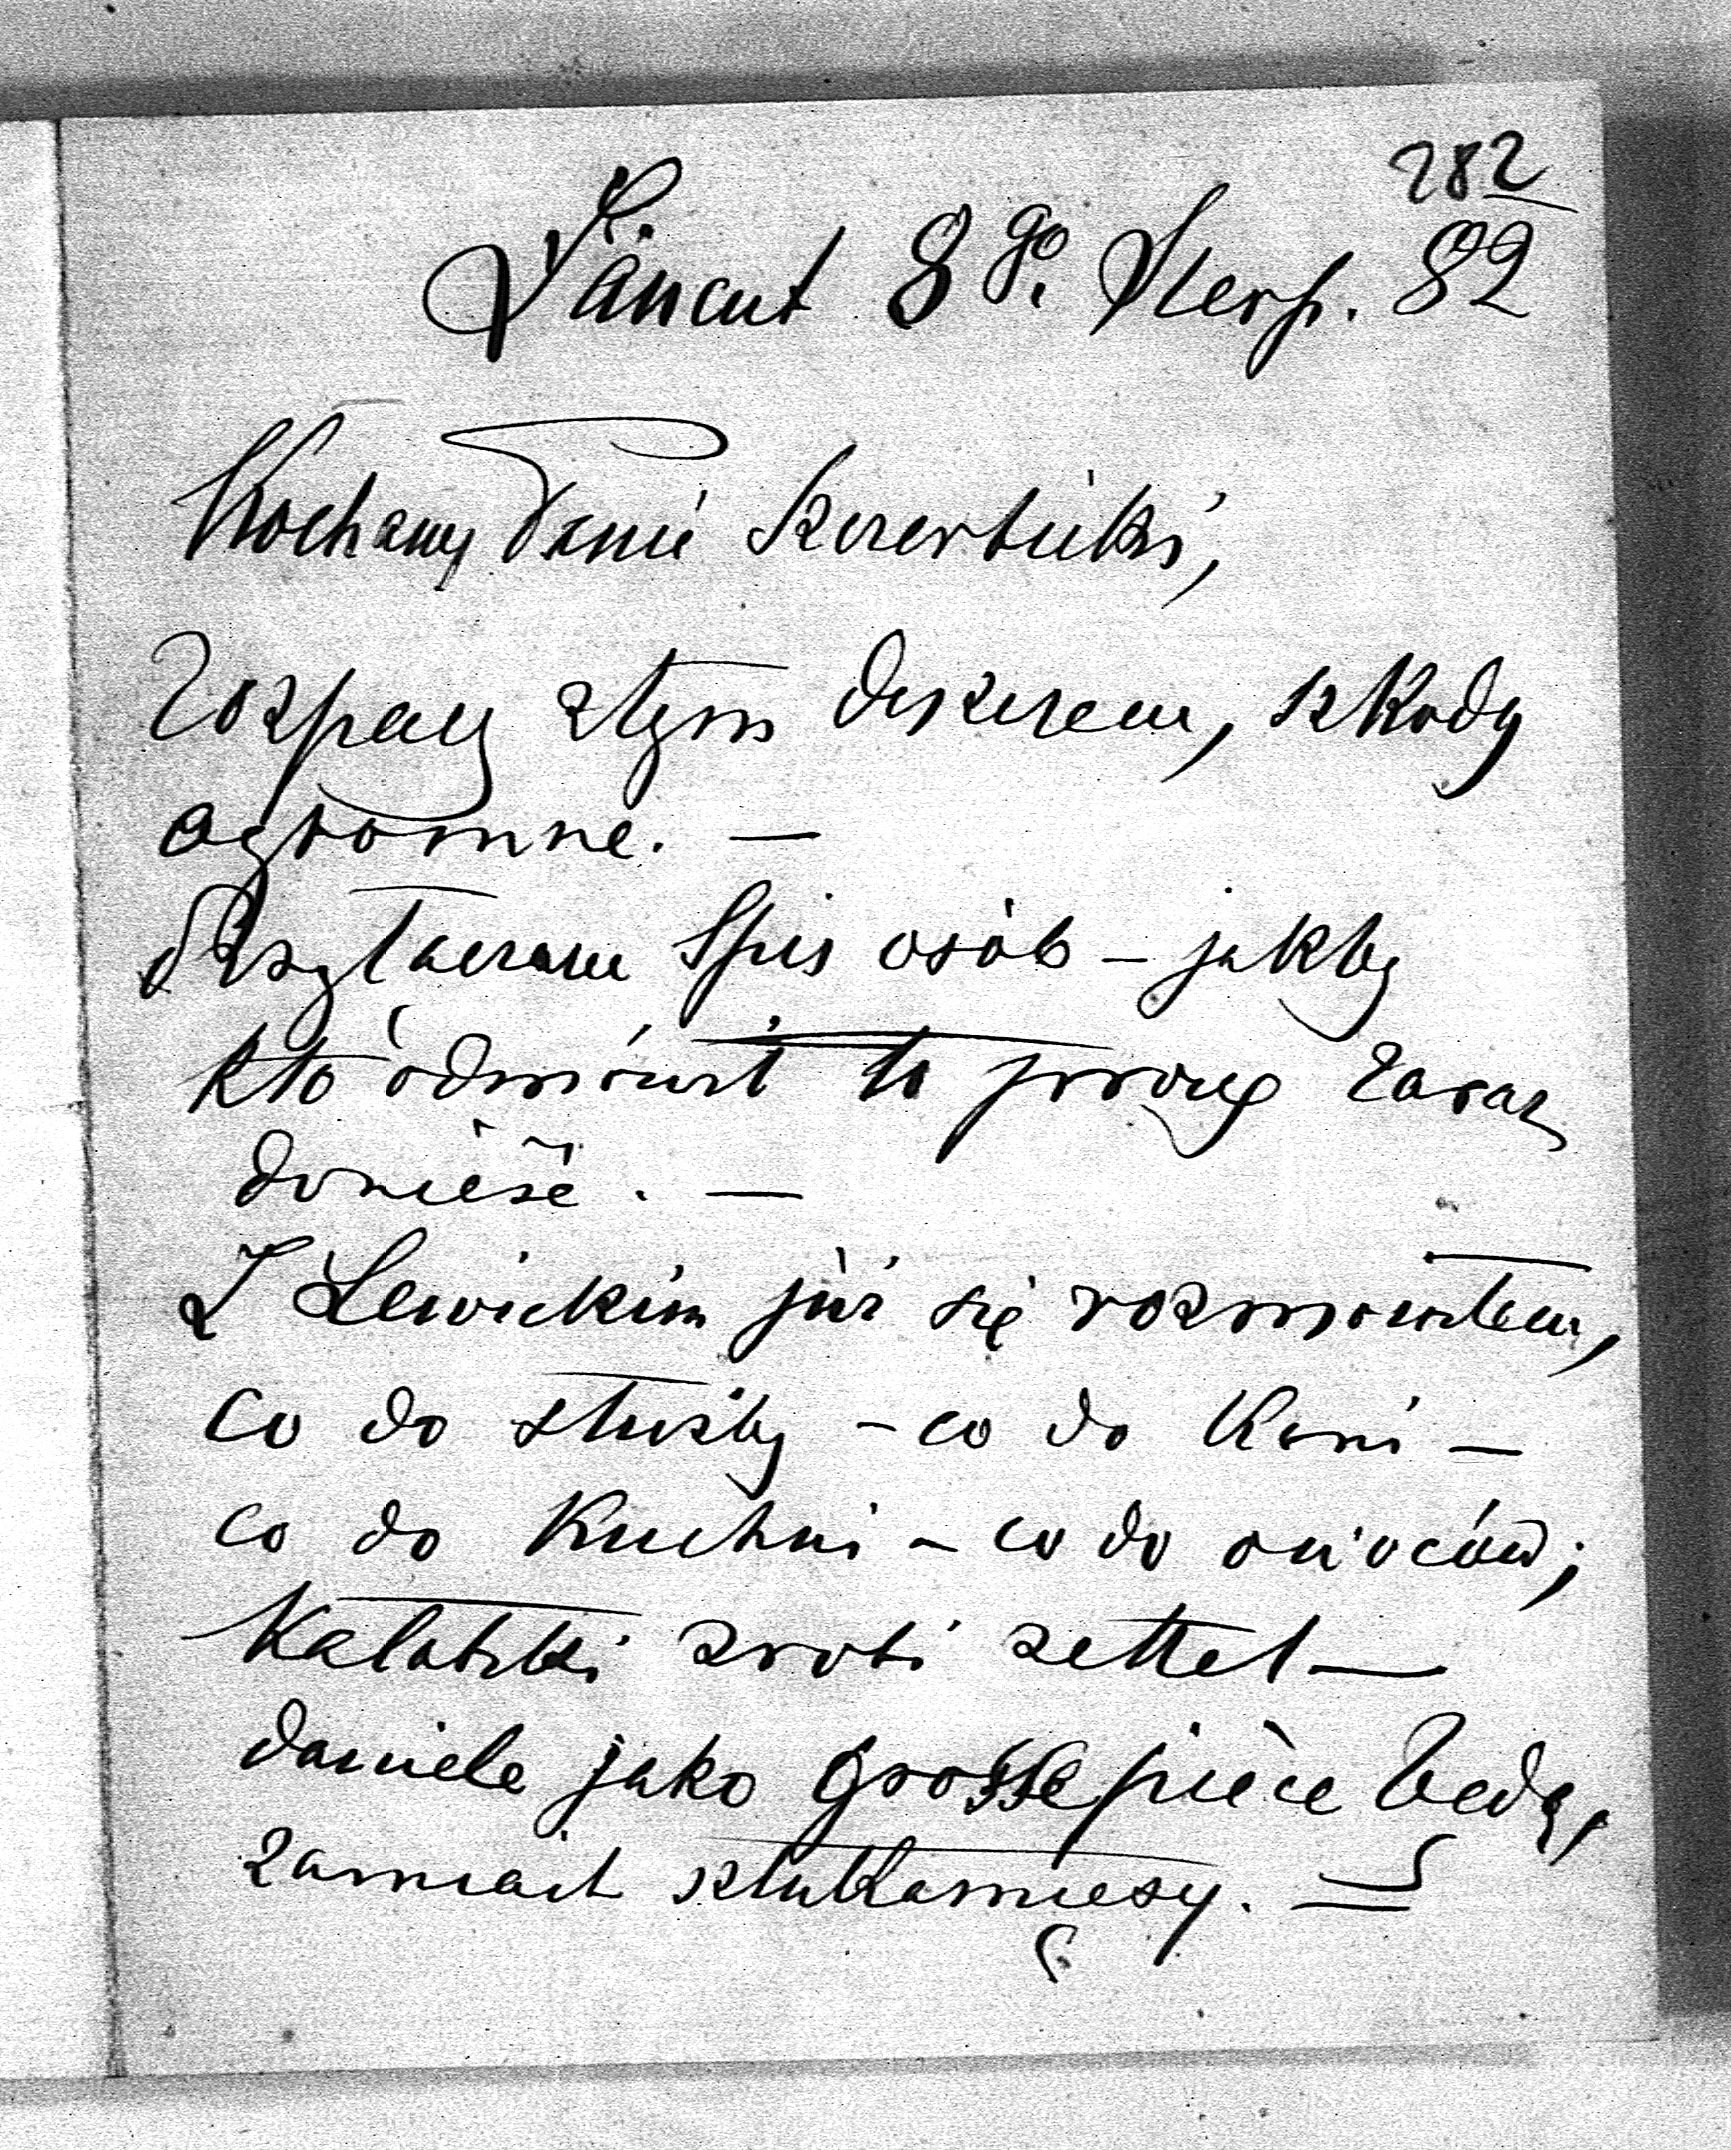 282
Łańcut 8go. Sierp. 82
Kochany Panie Skrerbiński,
Rozpacz z tym deszczem, szkody
ogromne. —
Przysłałam Spis osób – jakby
kto odmówił to proszę zaraz
donieść. —
Z Lewickim już się rozmówiłem,
co do służby – co do Koni —
co do Kuchni – co do owoców;
zrobi zettel —
daniele jako grosse pièce będą,
zamiast sztukamięsy. —